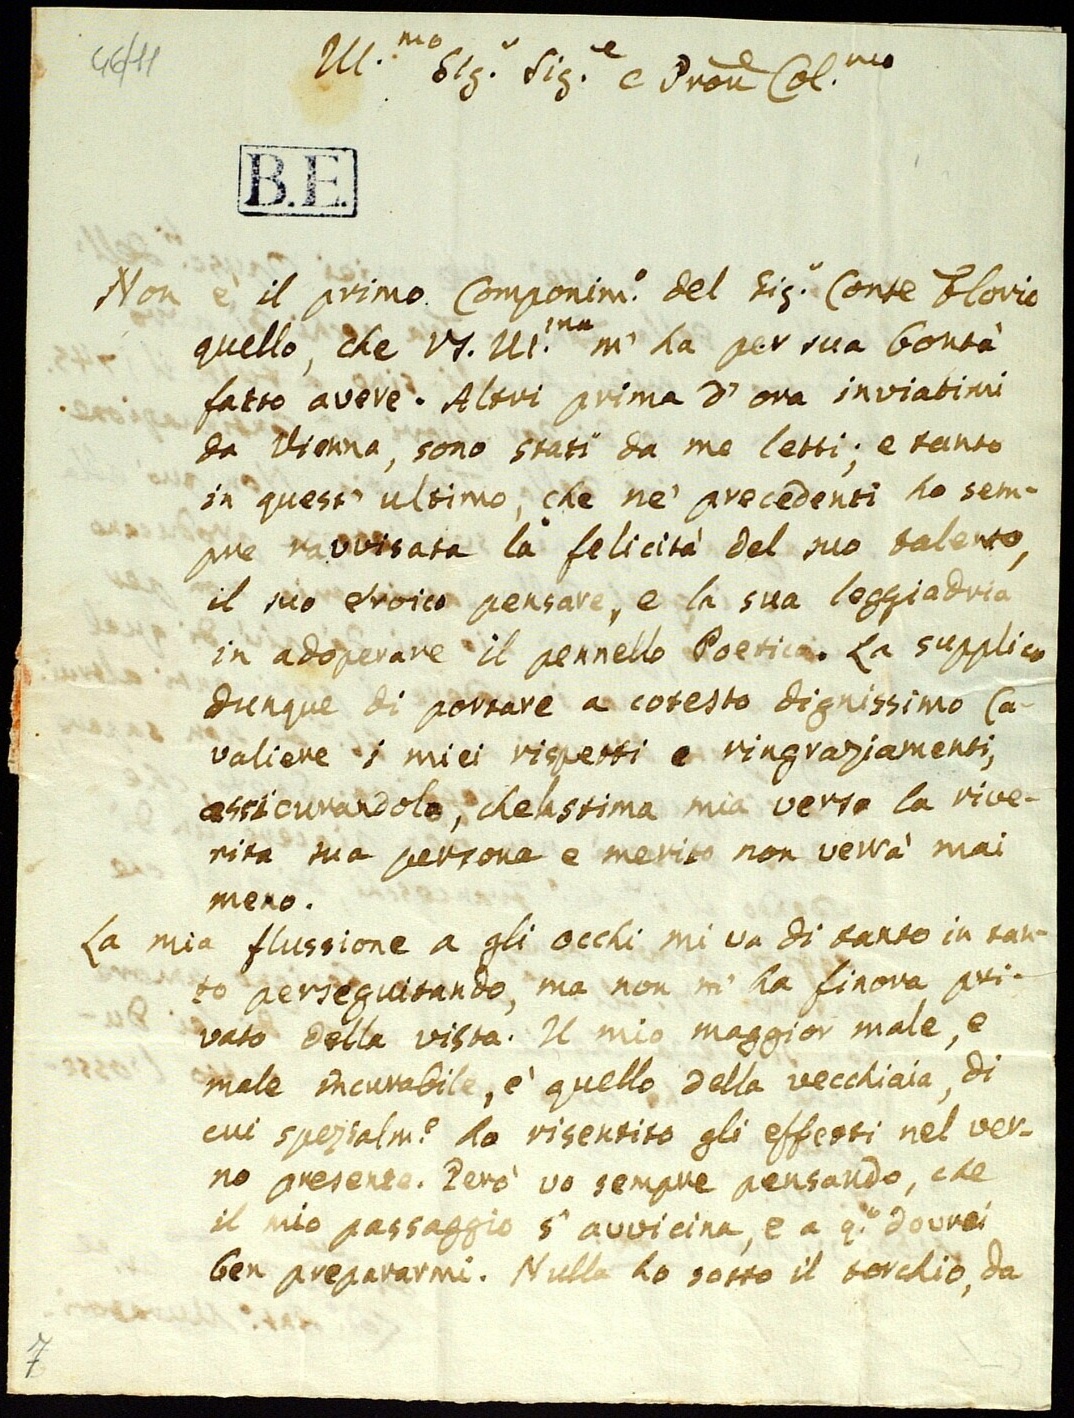 46/11
Ill.mo Sig.r Sig.e e Pron Col.mo
B.E.
Non è il primo Componim.o del Sig.r Conte Florio
quello, che VS. Ill.ma m' ha per sua bontà
fatto avere. Altri prima d' ora inviatimi
da Vienna, sono stati da me letti; e tanto
in quest' ultimo, che ne' precedenti ho sem-
pre ravvisata la felicità del suo talento,
il suo eroico pensare, e la sua leggiadria
in adoperare il pennello Poetico. La supplico
dunque di portare a cotesto dignissimo Ca-
valiere i miei rispetti e ringraziamenti,
assicurandolo, che la stima mia verso la rive-
rita sua persona e merito non verrà mai
meno.
La mia flussione a gli occhi mi va di tanto in tan-
to perseguitando, ma non m' ha finora pri-
vato della vista. Il mio maggior male, e
male incurabile, è quello della vecchiaia, di
cui spezialm.e ho risentito gli effetti nel ver-
no presente. Però vo sempre pensando, che
il mio passaggio s' avvicina, e a q.o dovrei
ben prepararmi. Nulla ho sotto il torchio, da
7